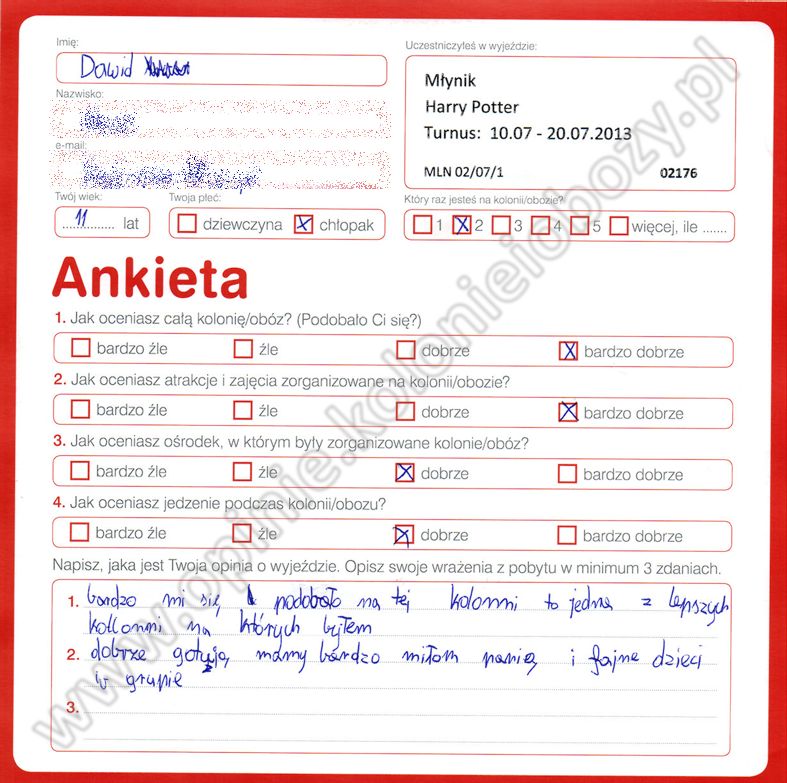 Imię:
Dawid
Uczestniczyłeś w wyjeździe:
Młynik
Harry Potter
Turnus: 10.07 - 20.07.2013
MLN 02/07/1 02176
Nazwisko:
e-mail:
Twój wiek:
11 lat
Twoja płeć:
dziewczyna chłopak
Który raz jesteś na kolonii/obozie?
1 2 3 4 5 więcej, ile .......
Ankieta
1. Jak oceniasz całą kolonię/obóz? (Podobało Ci się?)
bardzo źle źle dobrze bardzo dobrze
2. Jak oceniasz atrakcje i zajęcia zorganizowane na kolonii/obozie?
bardzo źle źle dobrze bardzo dobrze
3. Jak oceniasz ośrodek, w którym były zorganizowane kolonie/obóz?
bardzo źle źle dobrze bardzo dobrze
4. Jak oceniasz jedzenie podczas kolonii/obozu?
bardzo źle źle dobrze bardzo dobrze
Napisz, jaka jest Twoja opinia o wyjeździe. Opisz swoje wrażenia z pobytu w minimum 3 zdaniach.
1. bardzo mi się podobało na tej kolonni to jedna z lepszych
kollonni na których byłem
2. dobrze gotują, mamy bardzo miłom panią i fajne dzieci
w grupie
3.
www.opinie.kolonieiobozy.pl